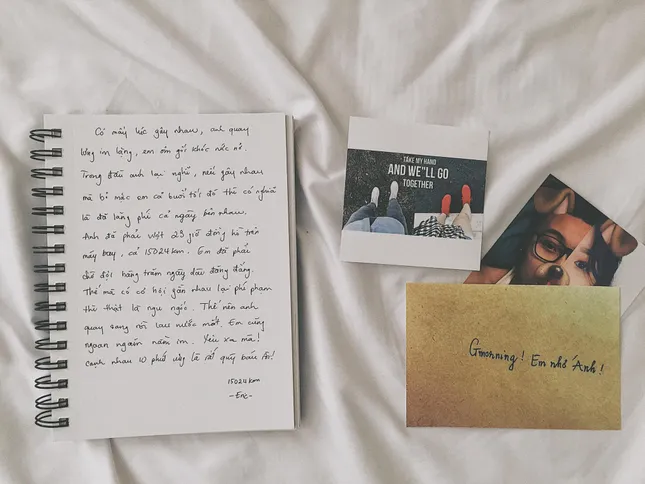 Có mấy lúc gây nhau, anh quay
lưng im lặng, em ôm gối khóc nức nở.
Trong đầu anh lại nghĩ, nếu gây nhau
mà bỏ mặc em cả buổi tối đó thì có nghĩa
là đã lãng phí cả ngày bên nhau.
Anh đã phải vượt 23 giờ đồng hồ trên
máy bay, cả 15024km. Em đã phải
chờ đợi hàng trăm ngày dài đằng đẵng.
Thế mà có cơ hội gần nhau lại phí phạm
thì thật là ngu ngốc. Thế nên anh
quay sang rồi lau nước mắt. Em cũng
ngoan ngoãn nằm im. Yêu xa mà!
cạnh nhau 10 phút cũng là rất quý báu rồi!
15024km
-Eric-
TAKE MY HAND
AND WE'LL GO
TOGETHER
Gmorning! Em nhớ Anh!